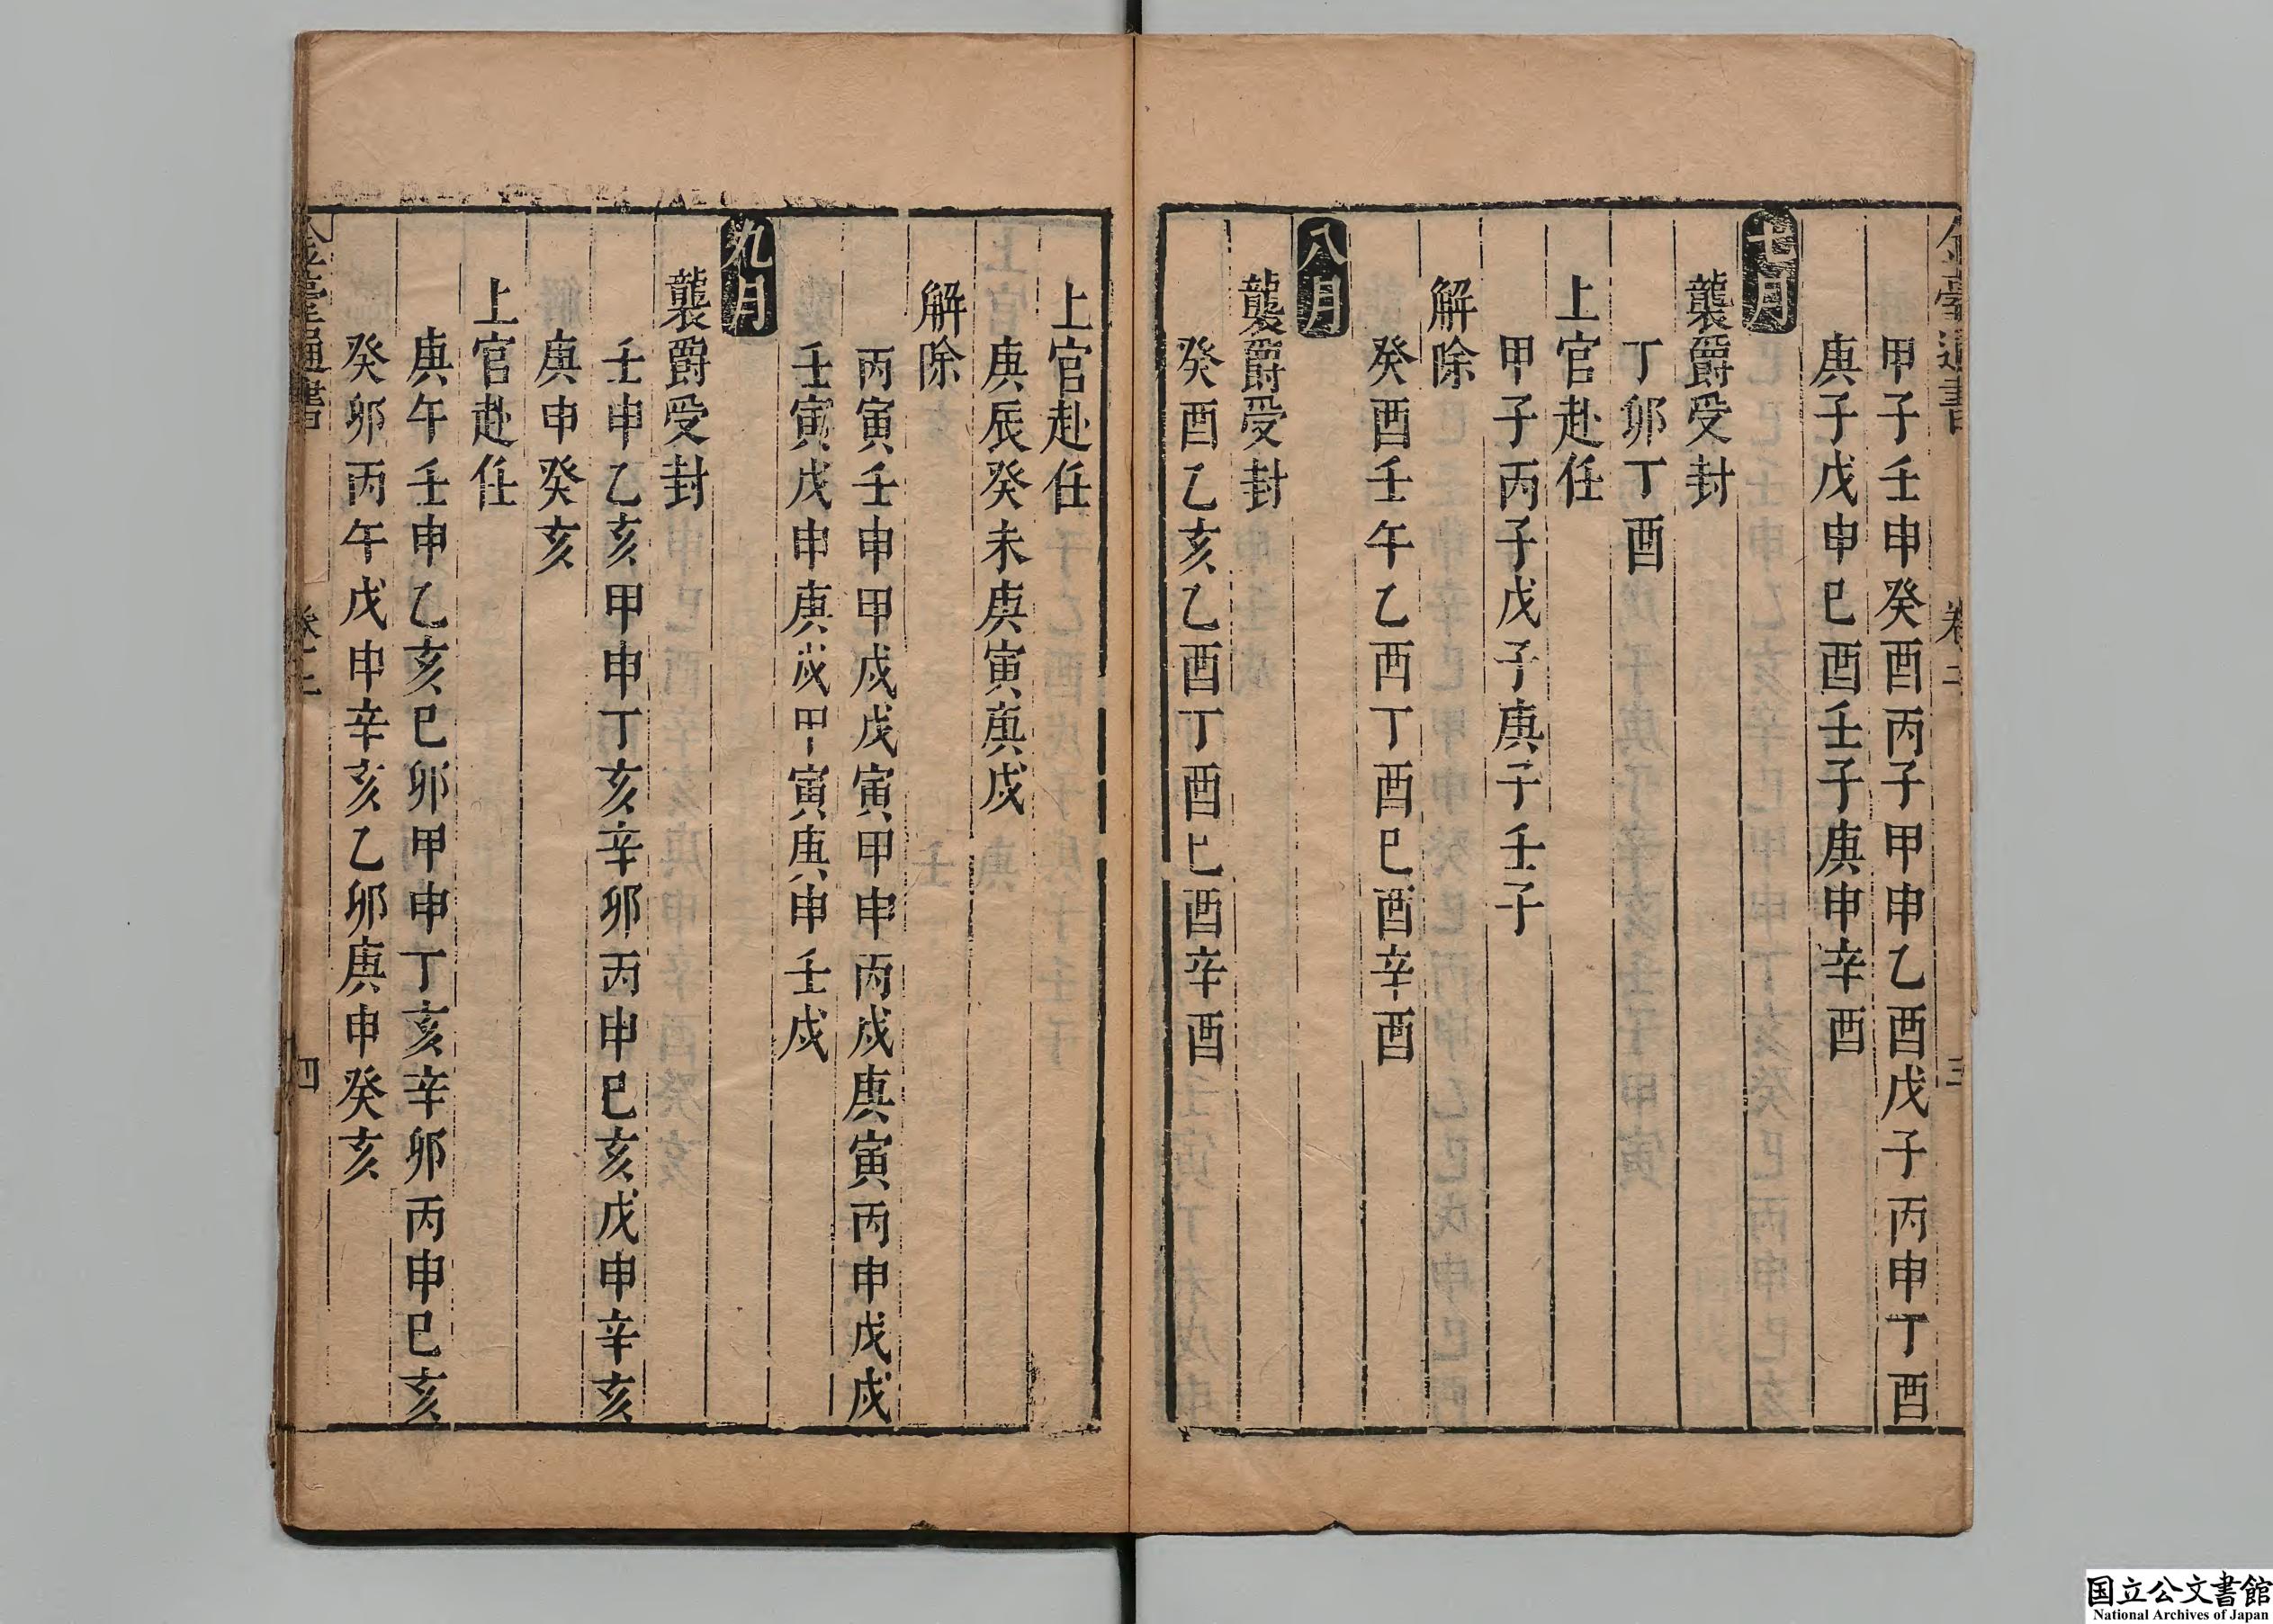 甲子壬申癸酉丙子甲申乙酉戊子丙申丁酉
庚子戊申巳酉壬子庚申辛酉
七月
襲爵受封
丁卯丁酉
上官赴任
甲子丙子戊子庚子壬子
解除
癸酉壬午乙酉丁酉巳酉辛酉
八月
襲爵受封
癸酉乙亥乙酉丁酉巳酉辛酉
上官赴任
庚辰癸未庚寅庚戌
解除
丙寅壬申甲戌戊寅甲申丙戌庚寅丙申戊戌
壬寅戊申庚戌甲寅庚申壬戌
九月
襲爵受封
壬申乙亥甲申丁亥辛卯丙申巳亥戊申辛亥
庚申癸亥
上官赴任
庚午壬申乙亥巳卯甲申丁亥辛卯丙申巳亥
癸卯丙午戊申辛亥乙卯庚申癸亥
四
国立公文書館
National Archives of Japan